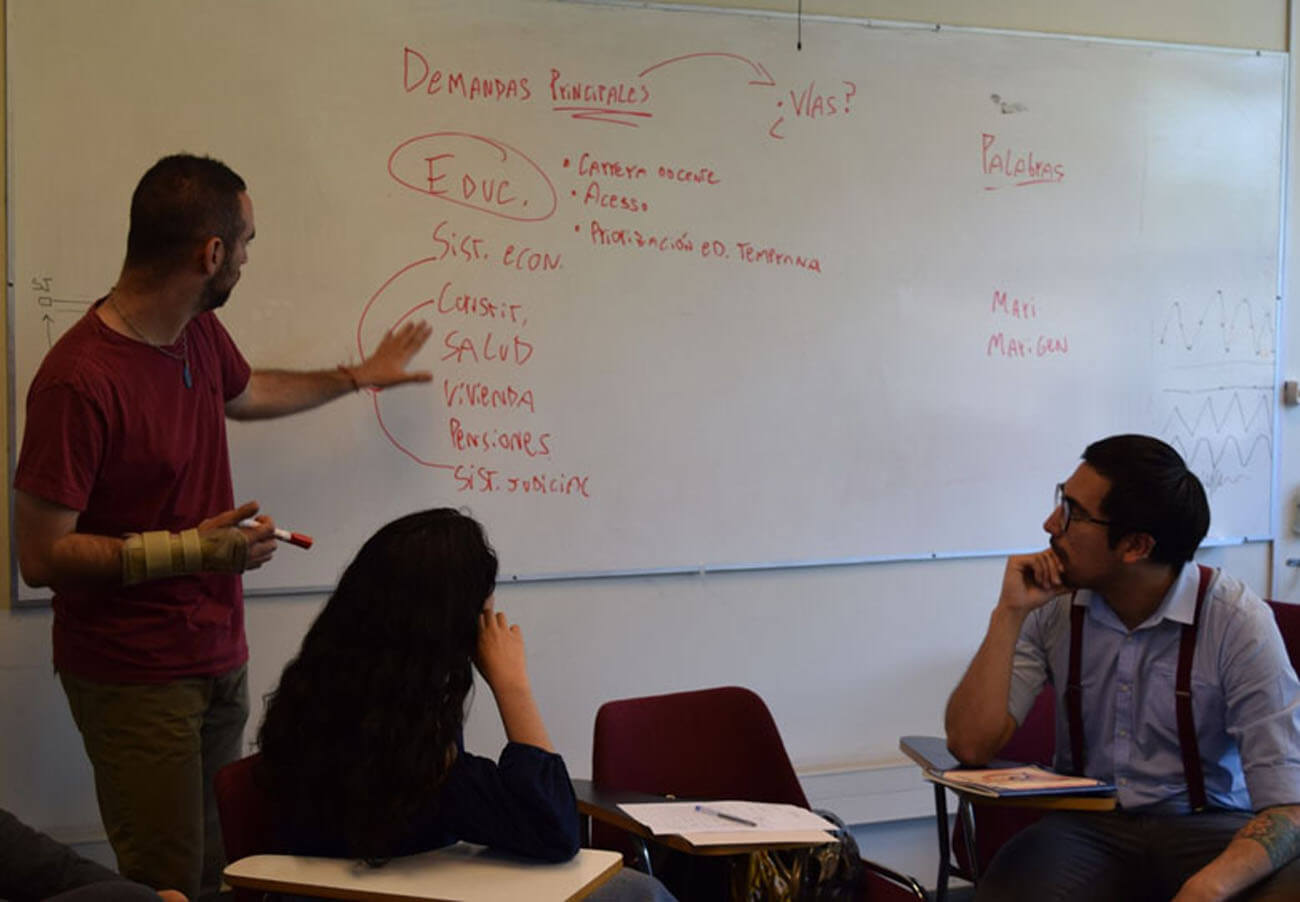 DEMANDAS PRINCIPALES
¿VIAS?
EDUC.
• CARRERA DOCENTE
• ACESSO
• PRIORIZACIÓN ED. TEMPRANA
SIST. ECON.
CONSTIT.
SALUD
VIVIENDA
PENSIONES
SIST. JUDICIAL
PALABRAS
MARI
MARI.GEN
SJ